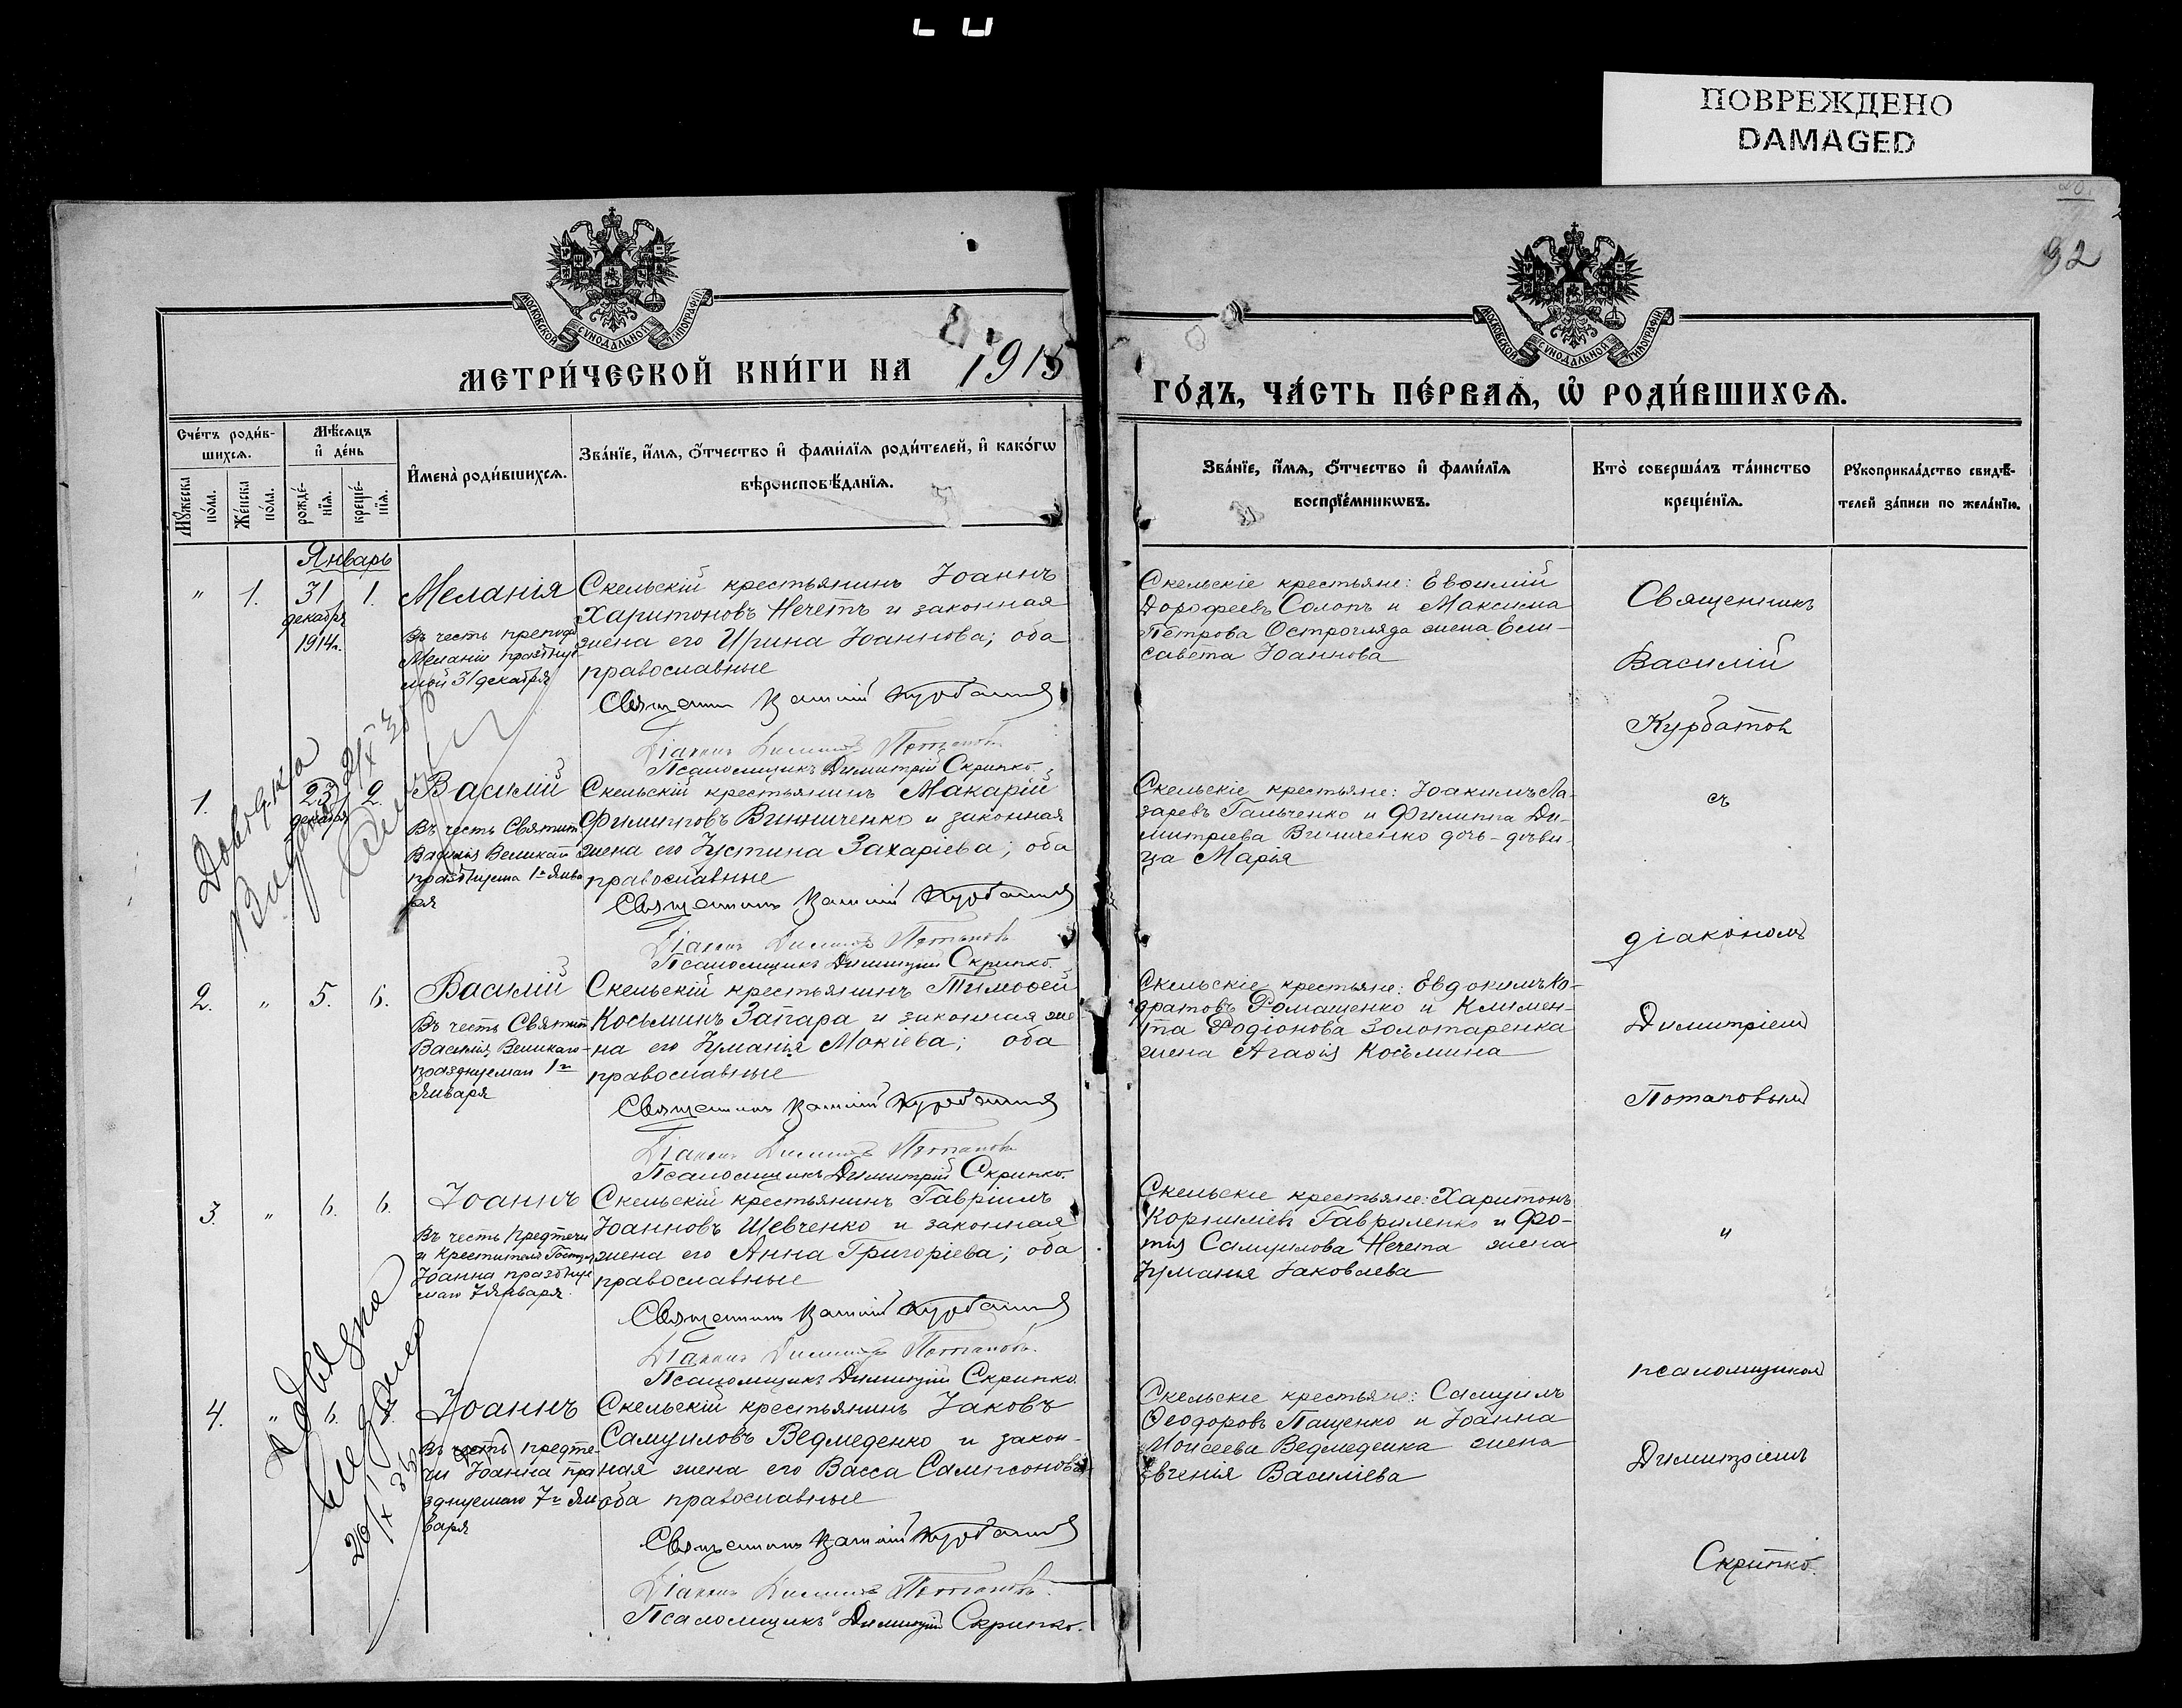 ПОВРЕЖДЕНО
DAMAGED
92
МОСКОВСКОЙ СУНОДАЛЬНОЙ ТИПОГРАФІИ
МОСКОВСКОЙ СУНОДАЛЬНОЙ ТИПОГРАФІИ
МЕТРИ́ЧЕСКОЙ КНИ́ГИ НА 1915
ГО́ДЪ, ЧА́СТЬ ПЕ́РВАѦ, Ѡ҆ РОДИ́ВШИХСѦ.
Сче́тъ роди́в-
шихсѧ.
Мꙋ́жеска по́ла.
Же́нска по́ла.
Мѣ́сѧцъ
и҆ де́нь
рожде́-
нїѧ.
креще́-
нїѧ.
И҆мена̀ роди́вшихсѧ.
Зва́нїе, и҆́мѧ, ѻ҆́тчество и҆ фами́лїѧ роди́телей, и҆ како́гѡ
вѣроисповѣ́данїѧ.
Зва́нїе, и҆́мѧ, ѻ҆́тчество и҆ фами́лїѧ
воспрїе́мникѡвъ.
Кто̀ соверша́лъ та́инство
креще́нїѧ.
Рꙋкоприкла́дство свидѣ́-
телей за́писи по жела́нїю.
Январь
" 1. 31 декабря 1914г. 1.
Меланія
Въ честь препод.
Меланіи праздную
мой 31 декабря
Скельскій крестьянинъ Іоаннъ
Харитоновъ Нечетъ и законная
жена его Ирина Іоаннова; оба
православные
Священникъ Василій Курбатовъ
Діаконъ Димитрій Потаповъ
Псаломщикъ Димитрій Скрипко.
Скельскіе крестьяне: Евѳимій
Дорофеевъ Солопъ и Максима
Петрова Острогляда жена Ели-
савета Іоаннова
Священникъ
Василій
Курбатовъ
1. 23 декабря 2.
Василій
Въ честь Святит.
Василія Великаго
празднуема 1го Янва
ря
Скельскій крестьянинъ Макарій
Филипповъ Винниченко и законная
жена его Іустина Захаріева; оба
православные
Священникъ Василій Курбатовъ
Діаконъ Димитрій Потаповъ
Псаломщикъ Димитрій Скрипко.
Скельскіе крестьяне: Іоакимъ Ла-
заревъ Гальченко и Филиппа Ди-
митріева Винниченко дочь-дѣви-
ца Марія
съ
діакономъ
2. " 5. 6.
Василій
Въ честь Святит.
Василія Великаго
празднуемаго 1го
Января
Скельскій крестьянинъ Тимоѳей
Косьминъ Запара и законная же
на его Іуманія Мокіева; оба
православные
Священникъ Василій Курбатовъ
Діаконъ Димитрій Потаповъ
Псаломщикъ Димитрій Скрипко.
Скельскіе крестьяне: Евдокимъ Ко-
дратовъ Ромащенко и Климен-
та Родіонова Золотаренка
жена Агаѳія Косьмина
Димитріемъ
Потаповымъ
3. " 6. 6.
Іоаннъ
Въ честь Предтечи
и Крестителя Господня
Іоанна праздную
маго 7 Января.
Скельскій крестьянинъ Гавріилъ
Іоанновъ Шевченко и законная
жена его Анна Григоріева; оба
православные
Священникъ Василій Курбатовъ
Діаконъ Димитрій Потаповъ.
Псаломщикъ Димитрій Скрипко.
Скельскіе крестьяне: Харитонъ
Корниліевъ Гавриленко и Фо-
тія Самуилова Нечета жена
Іуманія Іаковлева
"
псаломщикомъ
4. " 6.
Іоаннъ
Въ честь предте-
чи Іоанна пра
зднуемаго 7го Ян
варя
Скельскій крестьянинъ Іаковъ
Самуиловъ Ведмеденко и закон-
ная жена его Васса Сампсонова
оба православные
Священникъ Василій Курбатовъ
Діаконъ Димитрій Потаповъ.
Псаломщикъ Димитрій Скрипко.
Скельскіе крестьяне: Самуилъ
Ѳеодоровъ Пащенко и Іоанна
Моисеева Ведмеденка жена
Евгенія Василіева
Димитріемъ
Скрипко.